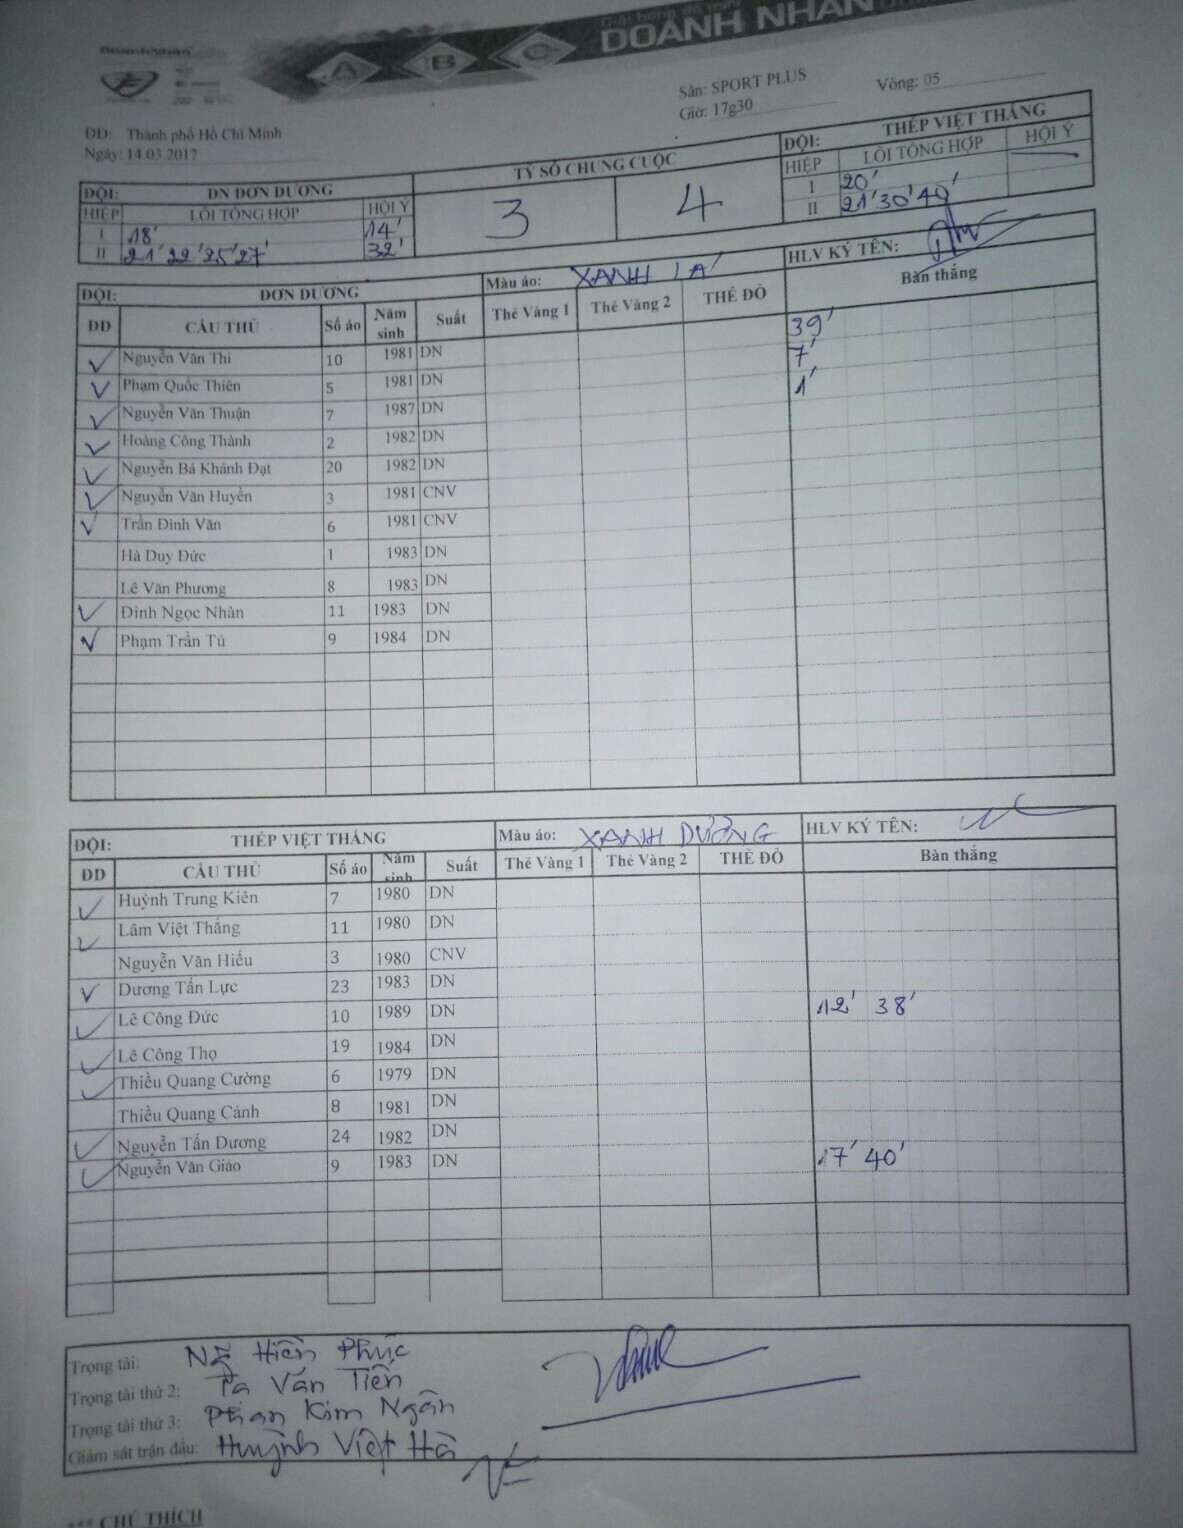 DOANH NHÂN
A B C
DoanhNhân
Sân: SPORT PLUS Vòng: 05
Giờ: 17g30
ĐD: Thành phố Hồ Chí Minh
Ngày: 14.03.2017
ĐỘI: DN ĐƠN DƯƠNG TỶ SỐ CHUNG CUỘC ĐỘI: THÉP VIỆT THẮNG
HIỆP LỖI TỔNG HỢP HỘI Ý 3 4 HIỆP LỖI TỔNG HỢP HỘI Ý
I 18' 14' I 20'
II 21' 22' 25' 27' 32' II 21' 30' 40'
ĐỘI: ĐƠN DƯƠNG Màu áo: XANH LÁ HLV KÝ TÊN:
ĐD CẦU THỦ Số áo Năm sinh Suất Thẻ Vàng 1 Thẻ Vàng 2 THẺ ĐỎ Bàn thắng
Nguyễn Văn Thi 10 1981 DN 39'
Phạm Quốc Thiên 5 1981 DN 7'
Nguyễn Văn Thuận 7 1987 DN 1'
Hoàng Công Thành 2 1982 DN
Nguyễn Bá Khánh Đạt 20 1982 DN
Nguyễn Văn Huyền 3 1981 CNV
Trần Đình Văn 6 1981 CNV
Hà Duy Đức 1 1983 DN
Lê Văn Phương 8 1983 DN
Đinh Ngọc Nhàn 11 1983 DN
Phạm Trần Tú 9 1984 DN
ĐỘI: THÉP VIỆT THẮNG Màu áo: XANH DƯƠNG HLV KÝ TÊN:
ĐD CẦU THỦ Số áo Năm sinh Suất Thẻ Vàng 1 Thẻ Vàng 2 THẺ ĐỎ Bàn thắng
Huỳnh Trung Kiên 7 1980 DN
Lâm Việt Thắng 11 1980 DN
Nguyễn Văn Hiếu 3 1980 CNV
Dương Tấn Lực 23 1983 DN
Lê Công Đức 10 1989 DN 12' 38'
Lê Công Thọ 19 1984 DN
Thiều Quang Cường 6 1979 DN
Thiều Quang Cảnh 8 1981 DN
Nguyễn Tấn Dương 24 1982 DN
Nguyễn Văn Giáo 9 1983 DN 17' 40'
Trọng tài: Ng Hiền Phúc
Trọng tài thứ 2: Tạ Văn Tiến
Trọng tài thứ 3: Phan Kim Ngân
Giám sát trận đấu: Huỳnh Việt Hà
*** CHÚ THÍCH